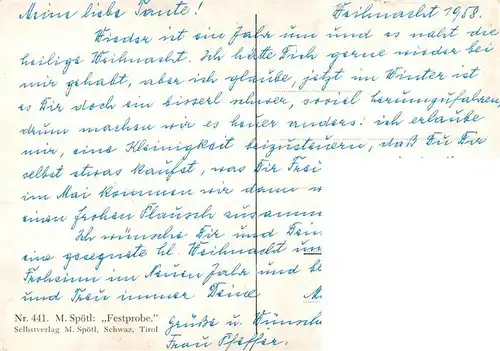 Meine liebe Tante!
Weihnacht 1958.
Wieder ist ein Jahr um und es naht die
heilige Weihnacht. Ich hätte Dich gerne wieder bei
mir gehabt, aber ich glaube, jetzt im Winter ist
es Dir doch ein bisserl schwer, soviel herumzufahren,
drum machen wir es heuer anders: ich erlaube
mir, eine Kleinigkeit beizusteuern, daß Du Dir
selbst etwas kaufst, was Dir Freu
im Mai kommen wir dann w
einen frohen Plausch zusamm
Ich wünsche Dir und Dein
eine gesegnete hl. Weihnacht un
Frohsinn im Neuen Jahr und be
und Treu immer Deine
Grüße u. Wünsch
Frau Pfeffer.
Nr. 441. M. Spötl: „Festprobe."
Selbstverlag M. Spötl, Schwaz, Tirol